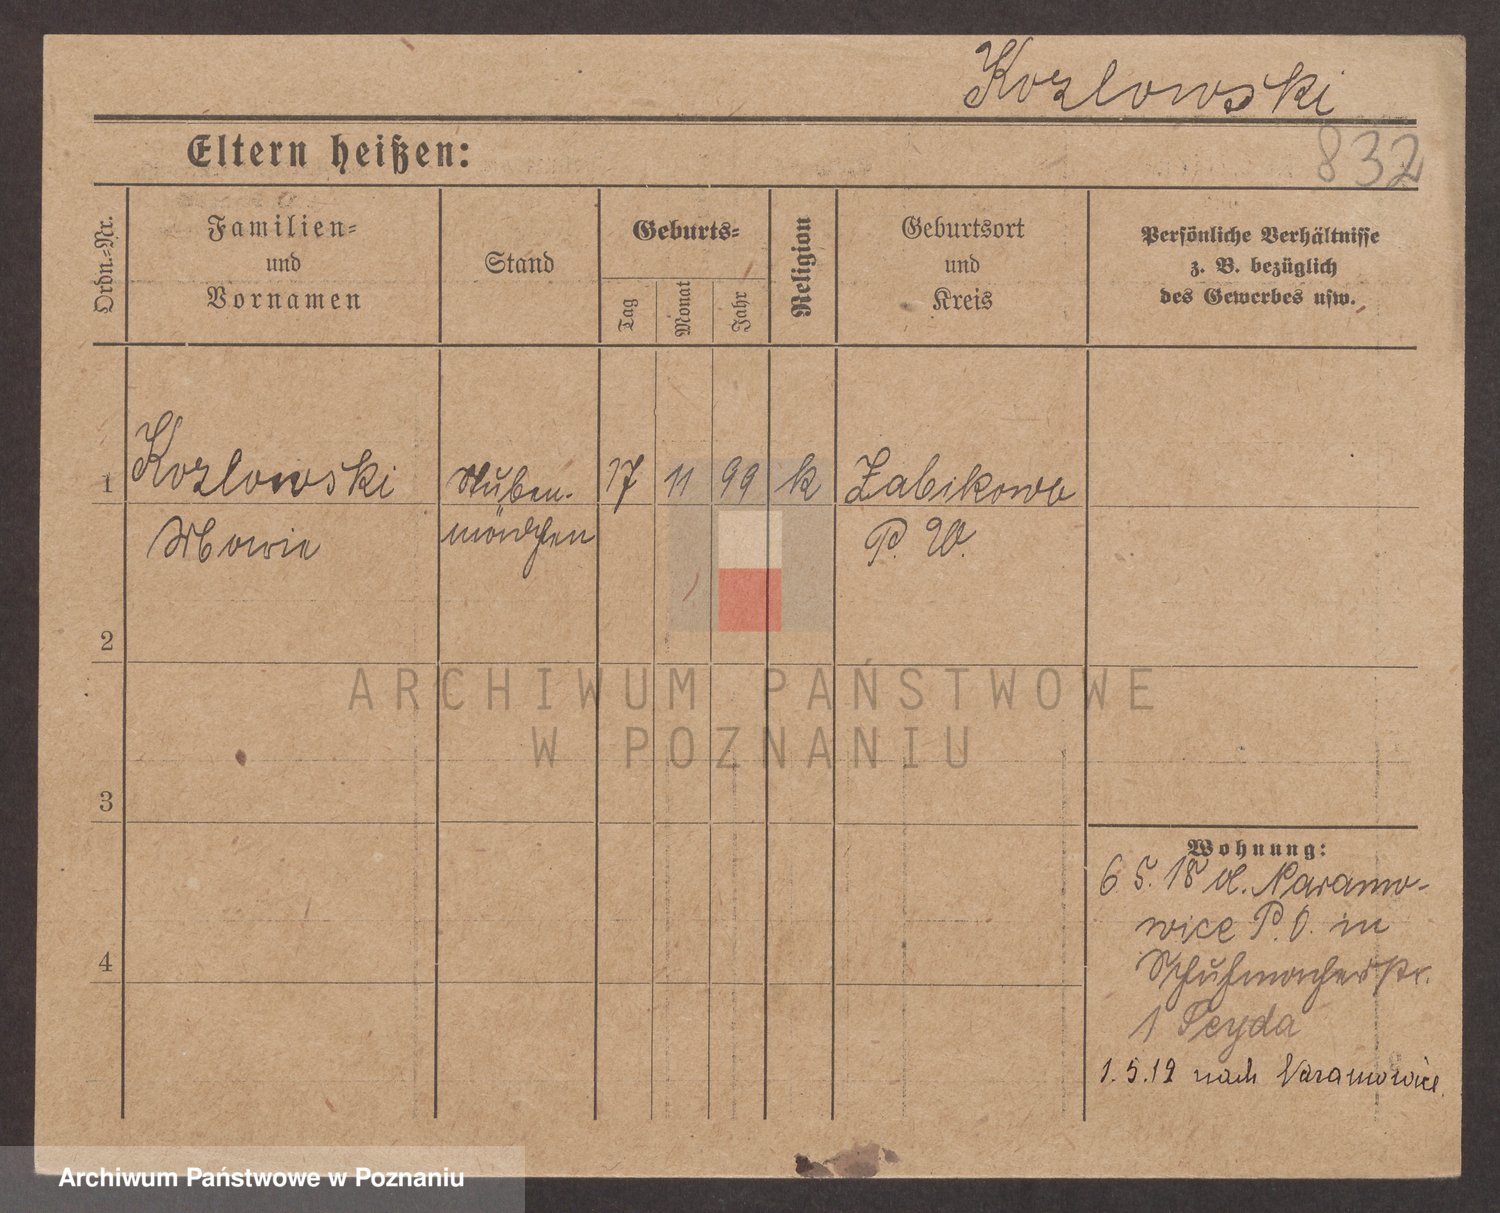 Kozlowski
832
Eltern heißen:
Ordn.-Nr.
Familien-
und
Vornamen
Stand
Geburts-
Tag
Monat
Jahr
Religion
Geburtsort
und
Kreis
Persönliche Verhältnisse
z. B. bezüglich
des Gewerbes usw.
1 Kozlowski Stuben- 17 11 99 k Zabikowo
Marie mädchen P. W.
2
3
4
Wohnung:
6 5. 18 v. Naramo-
wice P. O. in
Schuhmacherstr.
1 Seyda
1.5.19 nach Naramowice
ARCHIWUM PAŃSTWOWE
W POZNANIU
Archiwum Państwowe w Poznaniu